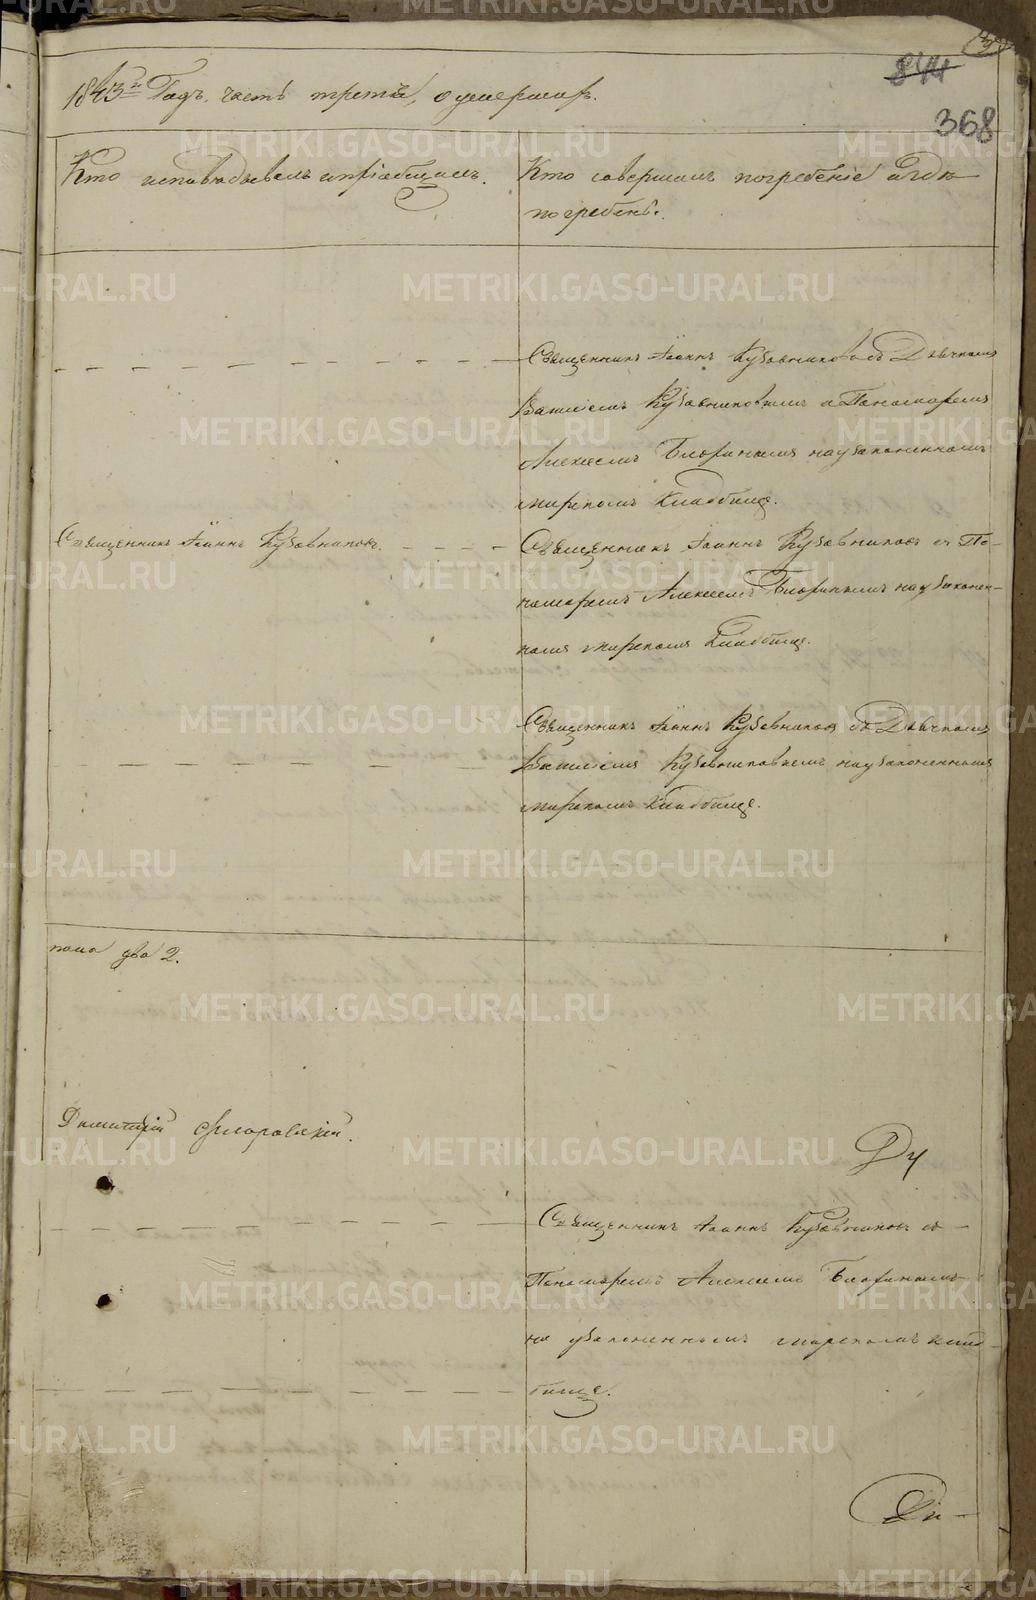 844
368
1843 Годъ, часть третія, о умершихъ.
Кто исповѣдывалъ и пріобщалъ.
Кто совершалъ погребеніе и гдѣ
погребенъ.
Священникъ Іоаннъ Кузовниковъ съ Дьячкомъ
Василіемъ Кузовниковымъ и Пономаремъ
Алексѣемъ на узаконенномъ
мирскомъ Кладбищѣ.
Священникъ Іоаннъ Кузовниковъ.
Священникъ Іоаннъ Кузовниковъ съ По-
номаремъ Алексѣемъ на узаконен-
номъ мирскомъ Кладбищѣ.
Священникъ Іоаннъ Кузовниковъ съ Дьячкомъ
Василіемъ Кузовниковымъ на узаконенномъ
мирскомъ Кладбищѣ.
пола два 2.
Димитрій Флоровскій.
Священникъ Іоаннъ Кузовниковъ съ
Пономаремъ Алексѣемъ
на узаконенномъ мирскомъ клад-
бищѣ.
METRIKI.GASO-URAL.RU